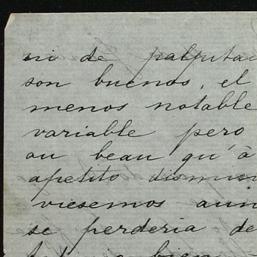 ni de palpita
son buenos, el
menos notable
variable pero
au beau qu'à
apetito dismin
viesemos aun
se perderia de